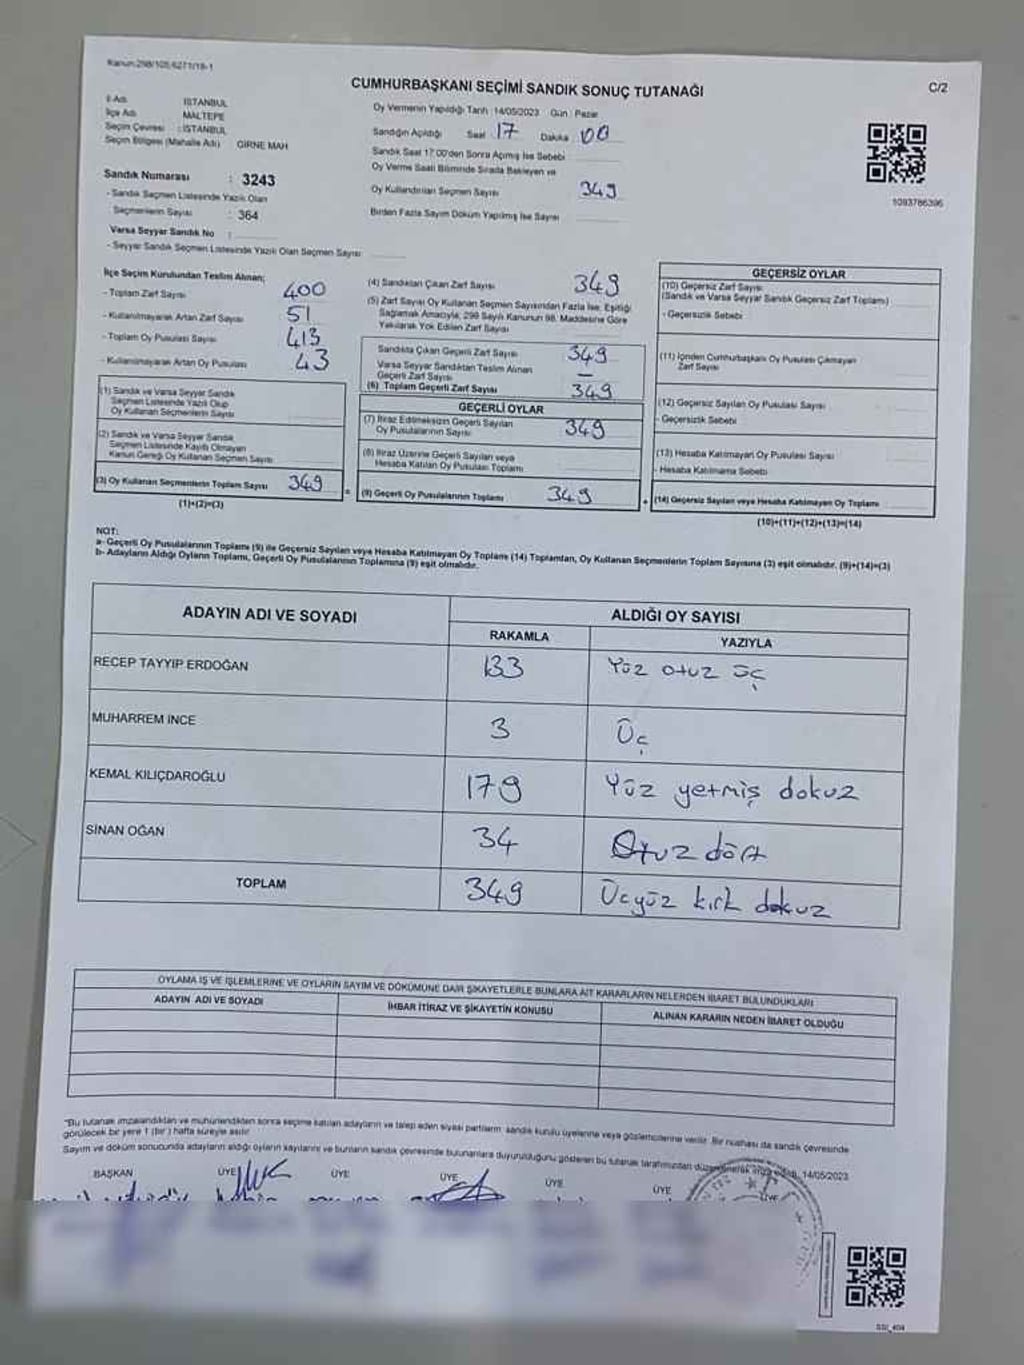 Kanun:298/105,6271/19-1
CUMHURBAŞKANI SEÇİMİ SANDIK SONUÇ TUTANAĞI
C/2
İl Adı İSTANBUL
İlçe Adı MALTEPE
Seçim Çevresi : İSTANBUL
Seçim Bölgesi (Mahalle Adı) GİRNE MAH
Sandık Numarası : 3243
- Sandık Seçmen Listesinde Yazılı Olan
Seçmenlerin Sayısı : 364
Varsa Seyyar Sandık No :
- Seyyar Sandık Seçmen Listesinde Yazılı Olan Seçmen Sayısı
Oy Vermenin Yapıldığı Tarih :14/05/2023 Gün : Pazar
Sandığın Açıldığı Saat 17 Dakika 00
Sandık Saat 17:00'den Sonra Açılmış İse Sebebi
Oy Verme Saati Bitiminde Sırada Bekleyen ve
Oy Kullandırılan Seçmen Sayısı 349
Birden Fazla Sayım Döküm Yapılmış İse Sayısı
1093786396
İlçe Seçim Kurulundan Teslim Alınan;
- Toplam Zarf Sayısı 400
- Kullanılmayarak Artan Zarf Sayısı 51
- Toplam Oy Pusulası Sayısı 413
- Kullanılmayarak Artan Oy Pusulası 43
(1) Sandık ve Varsa Seyyar Sandık
Seçmen Listesinde Yazılı Olup
Oy Kullanan Seçmenlerin Sayısı
(2) Sandık ve Varsa Seyyar Sandık
Seçmen Listesinde Kayıtlı Olmayan
Kanun Gereği Oy Kullanan Seçmen Sayısı
(3) Oy Kullanan Seçmenlerin Toplam Sayısı 349
(1)+(2)=(3)
(4) Sandıktan Çıkan Zarf Sayısı 349
(5) Zarf Sayısı Oy Kullanan Seçmen Sayısından Fazla İse, Eşitliği
Sağlamak Amacıyla; 298 Sayılı Kanunun 98. Maddesine Göre
Yakılarak Yok Edilen Zarf Sayısı
Sandıkta Çıkan Geçerli Zarf Sayısı 349
Varsa Seyyar Sandıktan Teslim Alınan
Geçerli Zarf Sayısı —
(6) Toplam Geçerli Zarf Sayısı 349
GEÇERLİ OYLAR
(7) İtiraz Edilmeksizin Geçerli Sayılan
Oy Pusulalarının Sayısı 349
(8) İtiraz Üzerine Geçerli Sayılan veya
Hesaba Katılan Oy Pusulası Toplamı
= (9) Geçerli Oy Pusulalarının Toplamı 349
GEÇERSİZ OYLAR
(10) Geçersiz Zarf Sayısı
(Sandık ve Varsa Seyyar Sandık Geçersiz Zarf Toplamı)
- Geçersizlik Sebebi
(11) İçinden Cumhurbaşkanı Oy Pusulası Çıkmayan
Zarf Sayısı
(12) Geçersiz Sayılan Oy Pusulası Sayısı
- Geçersizlik Sebebi
(13) Hesaba Katılmayan Oy Pusulası Sayısı
- Hesaba Katılmama Sebebi
+ (14) Geçersiz Sayılan veya Hesaba Katılmayan Oy Toplamı
(10)+(11)+(12)+(13)=(14)
NOT:
a- Geçerli Oy Pusulalarının Toplamı (9) ile Geçersiz Sayılan veya Hesaba Katılmayan Oy Toplamı (14) Toplamları, Oy Kullanan Seçmenlerin Toplam Sayısına (3) eşit olmalıdır. (9)+(14)=(3)
b- Adayların Aldığı Oyların Toplamı, Geçerli Oy Pusulalarının Toplamına (9) eşit olmalıdır.
ADAYIN ADI VE SOYADI
ALDIĞI OY SAYISI
RAKAMLA YAZIYLA
RECEP TAYYIP ERDOĞAN 133 Yüz otuz üç
MUHARREM İNCE 3 Üç
KEMAL KILIÇDAROĞLU 179 Yüz yetmiş dokuz
SİNAN OĞAN 34 Otuz dört
TOPLAM 349 Üçyüz kırk dokuz
OYLAMA İŞ VE İŞLEMLERİNE VE OYLARIN SAYIM VE DÖKÜMÜNE DAİR ŞİKAYETLERLE BUNLARA AİT KARARLARIN NELERDEN İBARET BULUNDUKLARI
ADAYIN ADI VE SOYADI İHBAR İTİRAZ VE ŞİKAYETİN KONUSU ALINAN KARARIN NEDEN İBARET OLDUĞU
"Bu tutanak imzalandıktan ve mühürlendikten sonra seçime katılan adayların ve talep eden siyasi partilerin sandık kurulu üyelerine veya gözlemcilerine verilir. Bir nüshası da sandık çevresinde
görülecek bir yere 1 (bir) hafta süreyle asılır.
Sayım ve döküm sonucunda adayların aldığı oyların sayılarını ve bunların sandık çevresinde bulunanlara duyurulduğunu gösteren bu tutanak tarafımızdan düzenlenerek imza edildi. 14/05/2023
BAŞKAN ÜYE ÜYE ÜYE ÜYE ÜYE ÜYE
SSI_404